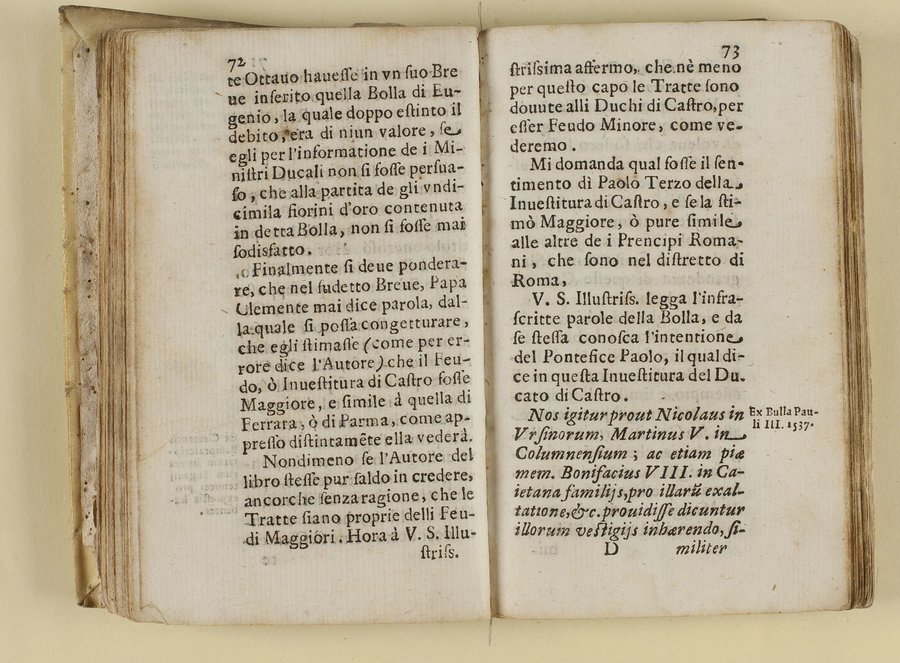 72
te Ottauo hauesse in vn suo Bre
ue inserito quella Bolla di Eu-
genio, la quale doppo estinto il
debito, era di niun valore, se
egli per l'informatione de i Mi-
nistri Ducali non si fosse persua-
so, che alla partita de gli vndi-
cimila fiorini d'oro contenuta
in detta Bolla, non si fosse mai
sodisfatto.
Finalmente si deue pondera-
re, che nel sudetto Breue, Papa
Clemente mai dice parola, dal-
la quale si possa congetturare,
che egli stimasse (come per er-
rore dice l'Autore) che il Feu-
do, ò Inuestitura di Castro fosse
Maggiore, e simile à quella di
Ferrara, ò di Parma, come ap-
presso distintamẽte ella vederà.
Nondimeno se l'Autore del
libro stesse pur saldo in credere,
ancorche senza ragione, che le
Tratte siano proprie delli Feu-
di Maggiori. Hora à V. S. Illu-
striss.
73
strissima affermo, che nè meno
per questo capo le Tratte sono
douute alli Duchi di Castro, per
esser Feudo Minore, come ve-
deremo.
Mi domanda qual fosse il sen-
timento di Paolo Terzo della
Inuestitura di Castro, e se la sti-
mò Maggiore, ò pure simile
alle altre de i Prencipi Roma-
ni, che sono nel distretto di
Roma,
V. S. Illustriss. legga l'infra-
scritte parole della Bolla, e da
se stessa conosca l'intentione
del Pontefice Paolo, il qual di-
ce in questa Inuestitura del Du.
cato di Castro.
Nos igitur prout Nicolaus in
Vrsinorum, Martinus V. in
Columnensium; ac etiam piæ
mem. Bonifacius VIII. in Ca-
ietana familijs, pro illarũ exal-
tatione, &c. prouidisse dicuntur
illorum vestigijs inhærendo, si-
D militer
Ex Bulla Pau-
li III. 1537.